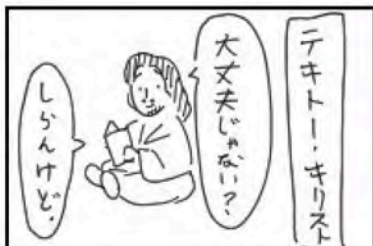 テキトー・キリスト
大丈夫じゃない？
しらんけど。